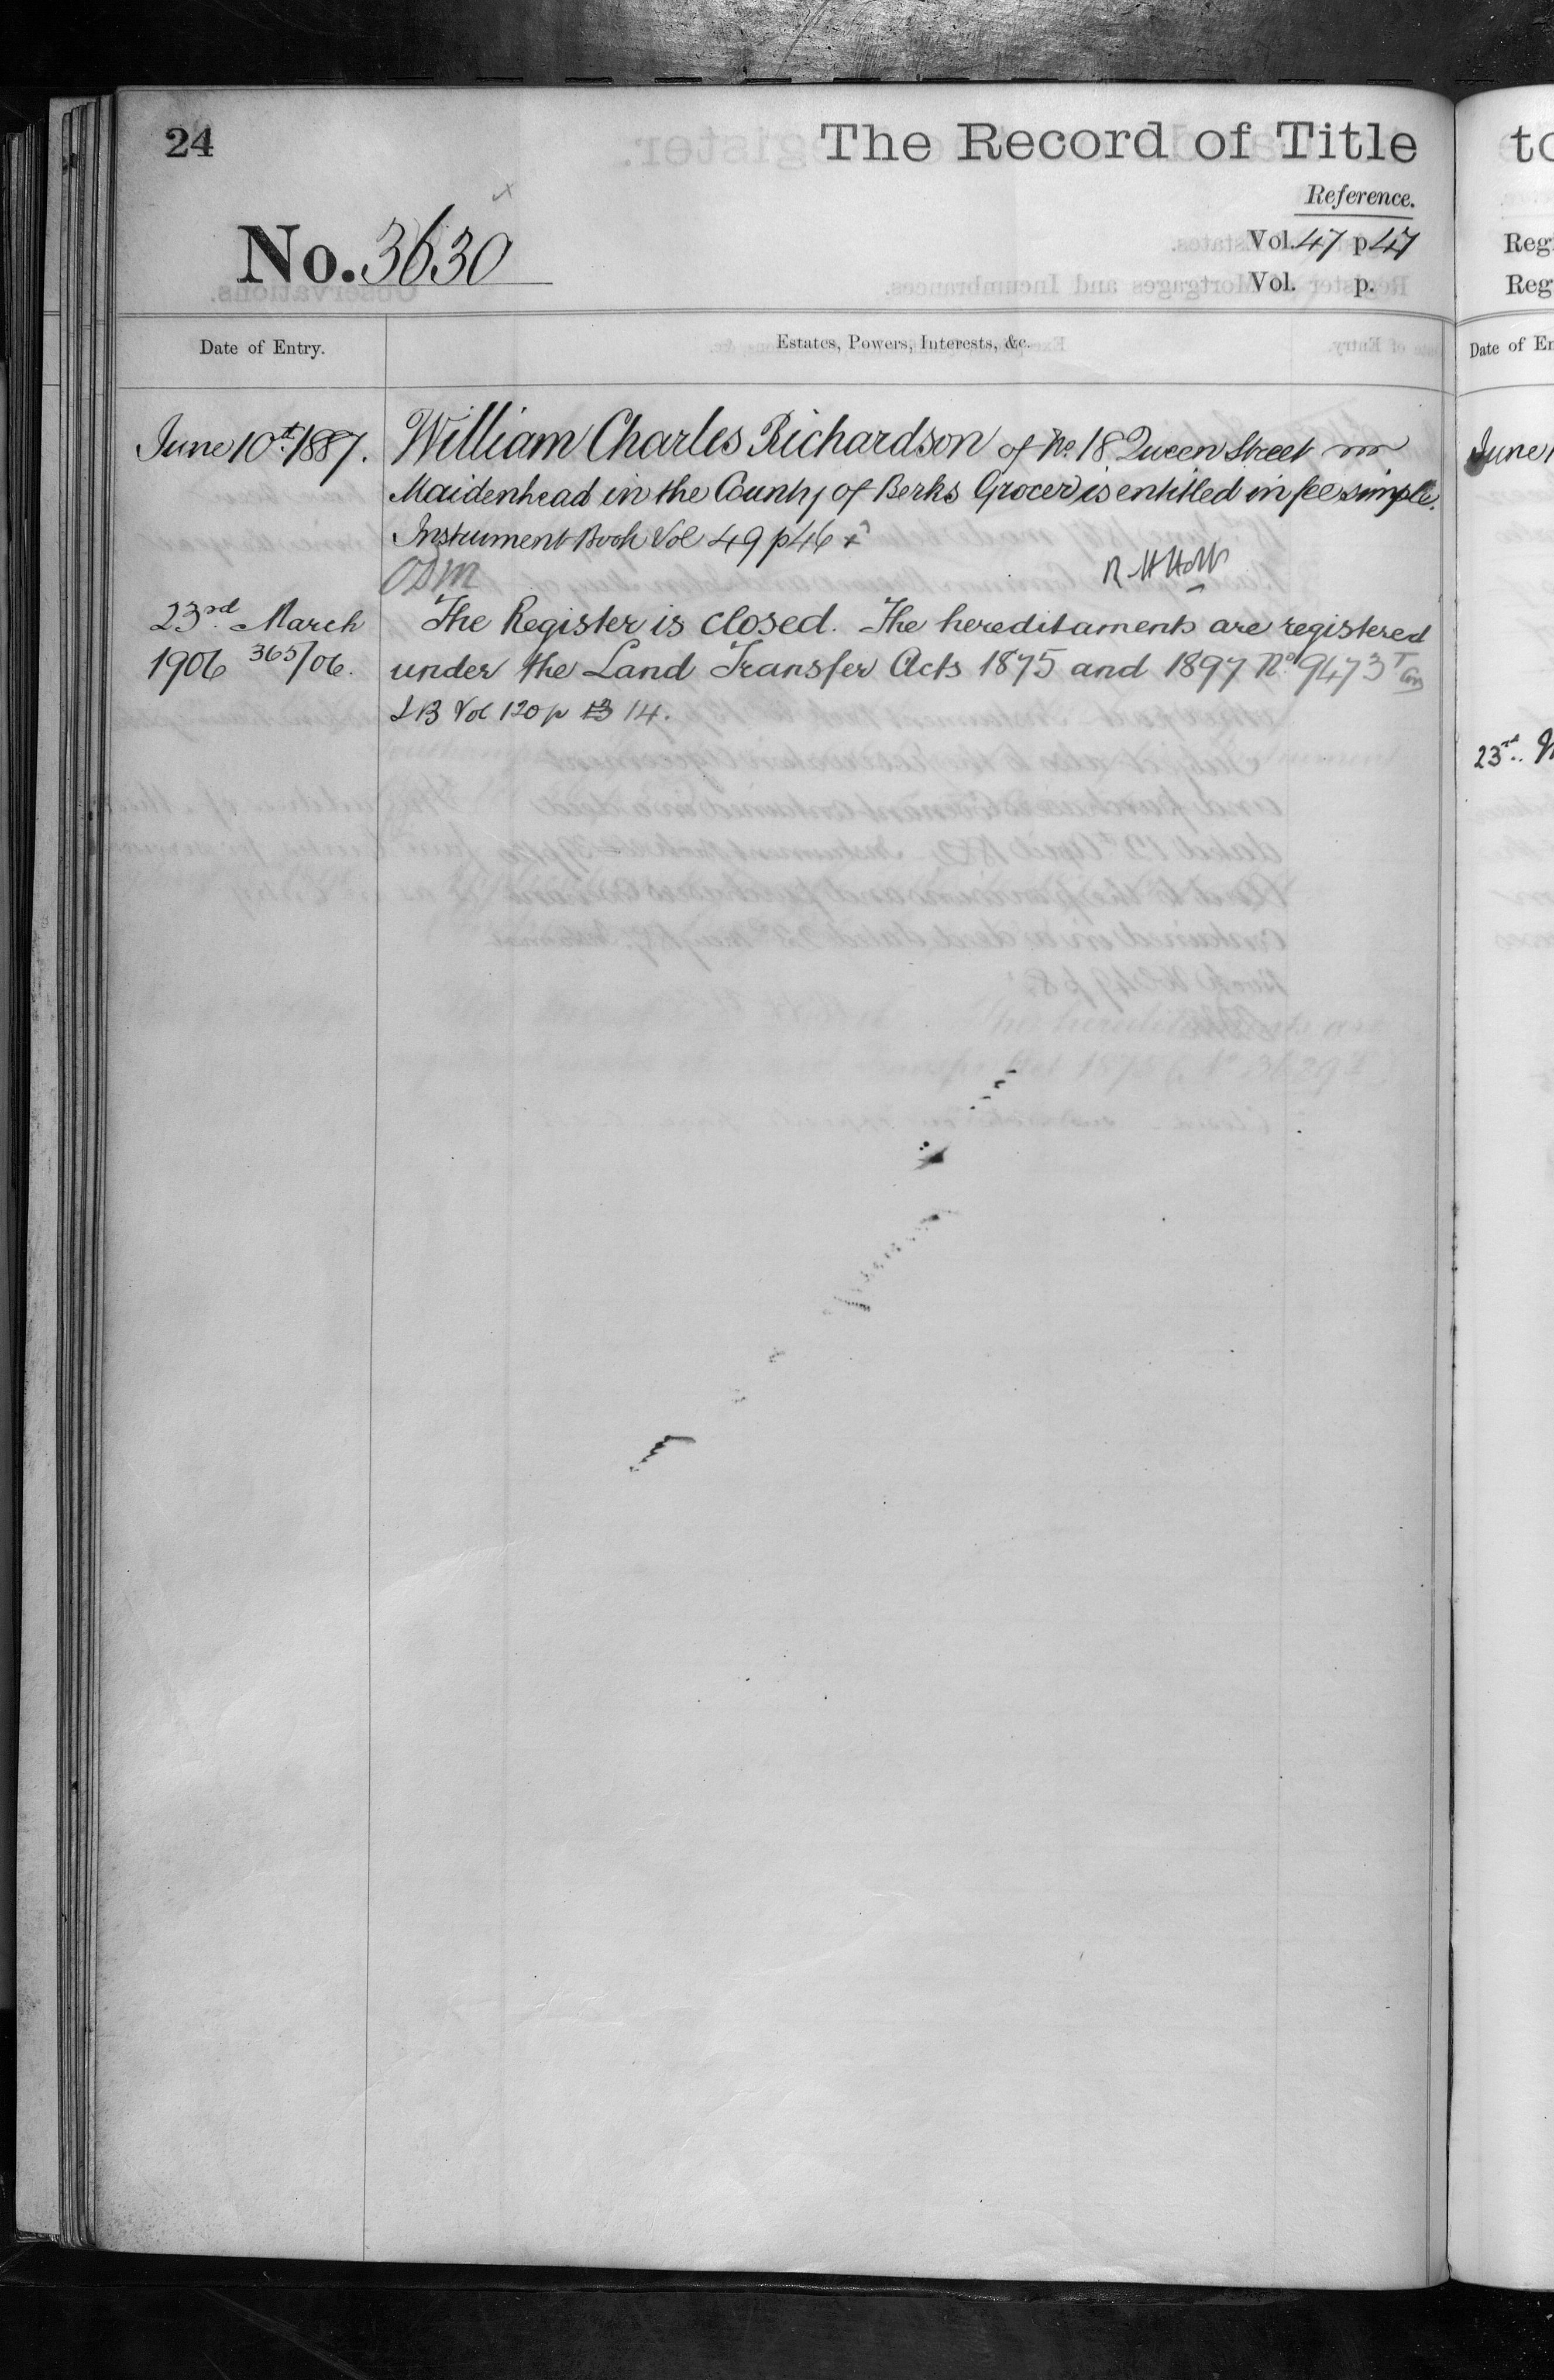 24
The Record of Title
Reference.
No. 3630
Vol. 47 p 47
Vol. p.
Date of Entry.
Estates, Powers, Interests, &c.
June 10th 1887.
William Charles Richardson of No. 18 Queen Street in
Maidenhead in the County of Berks Grocer is entitled in fee simple.
Instrument Book Vol 49 p 46
23rd March
1906 365/06.
The Register is closed. The hereditaments are registered
under the Land Transfer Acts 1875 and 1897 No 9473
I B Vol 120 p 13 14.
to
Reg
Reg
Date of En
June 1
23rd